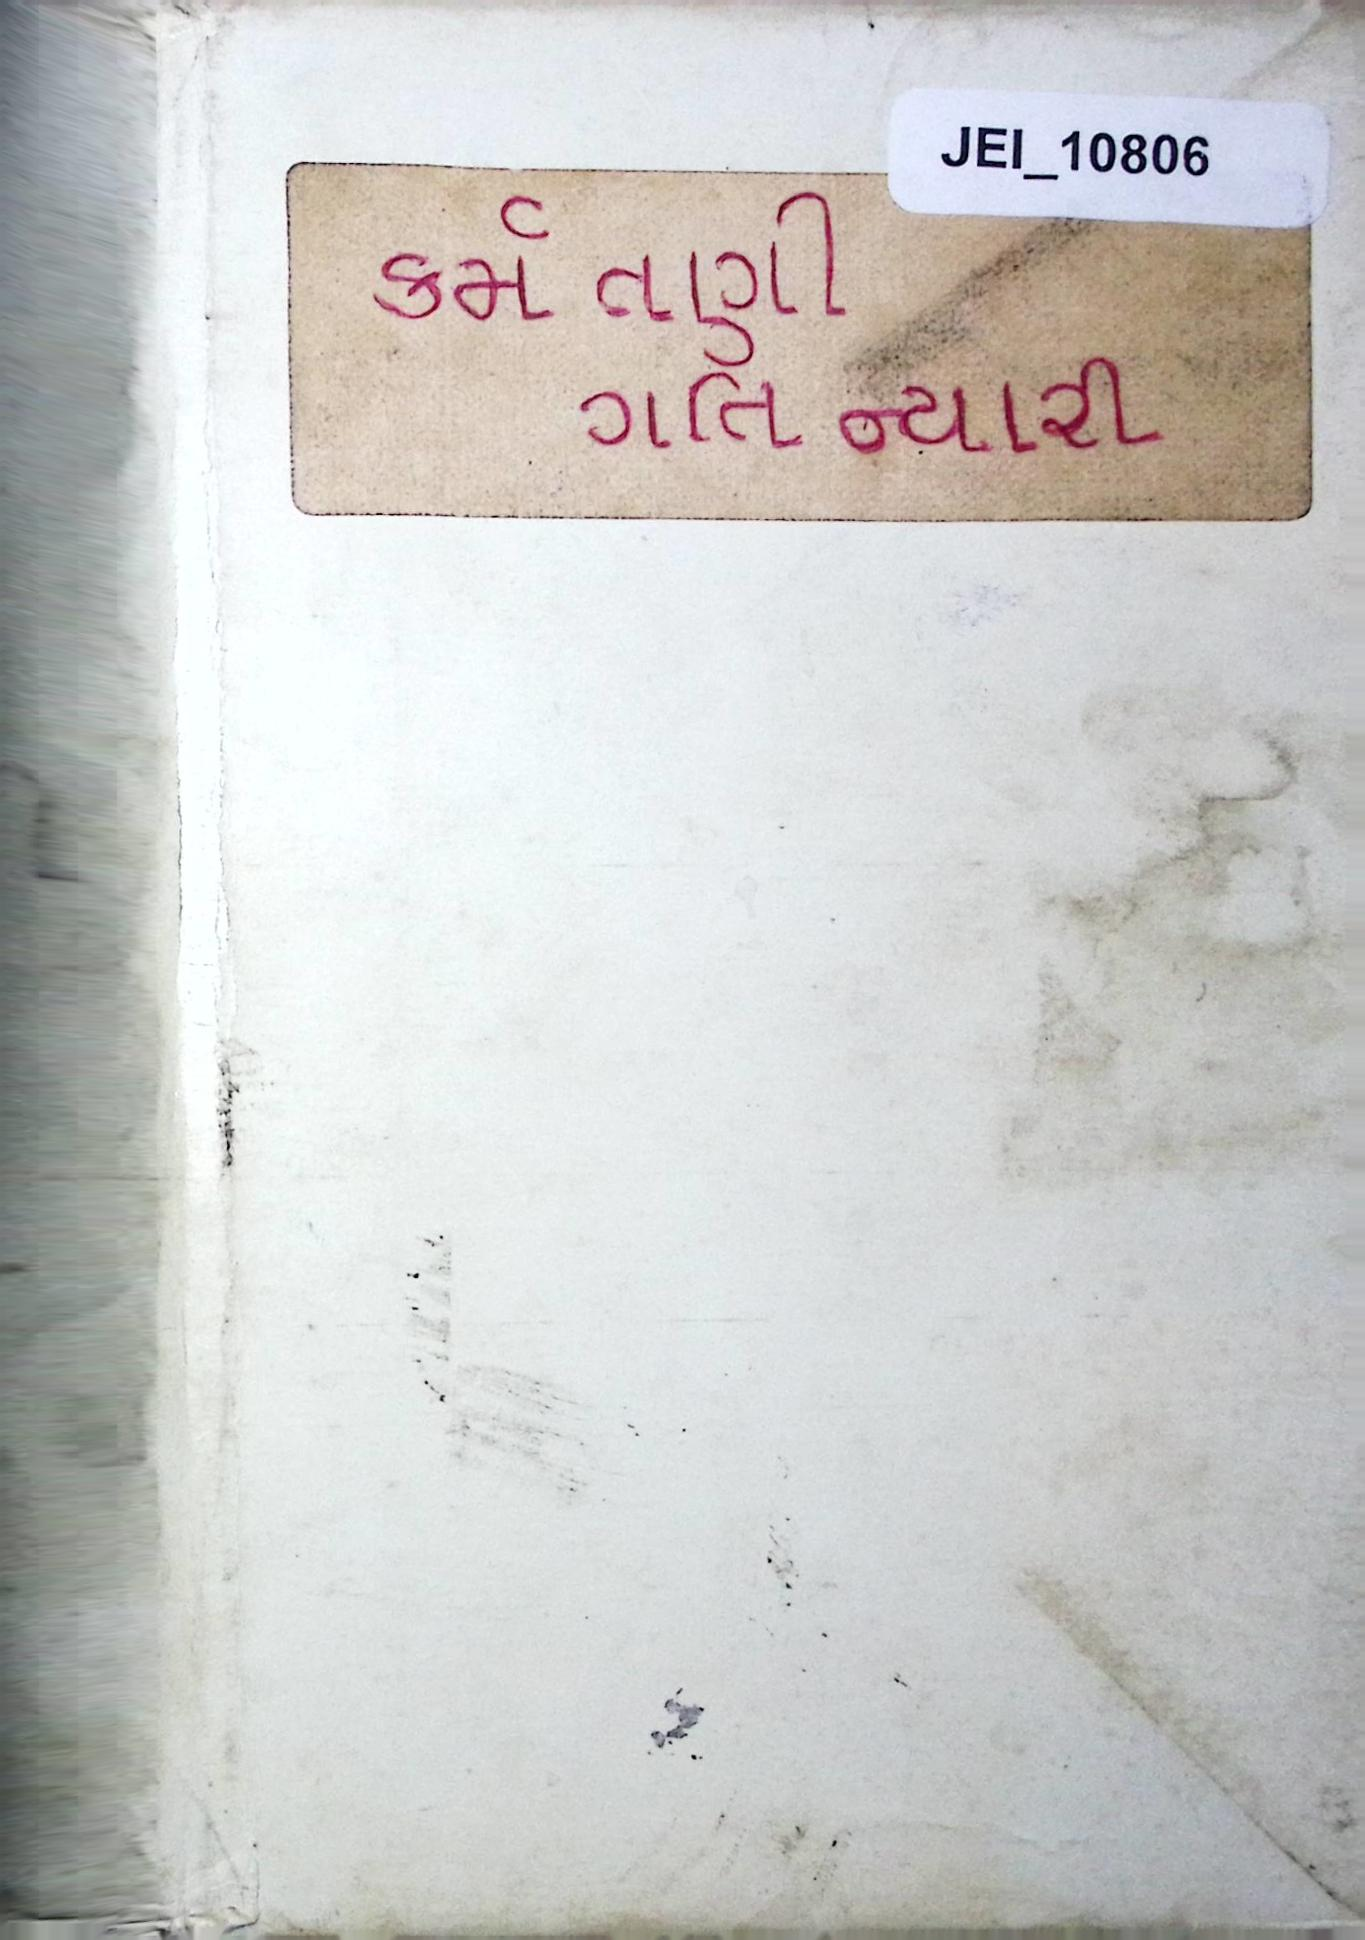 JEI_10806
કર્મ તણી
ગતિ ન્યારી